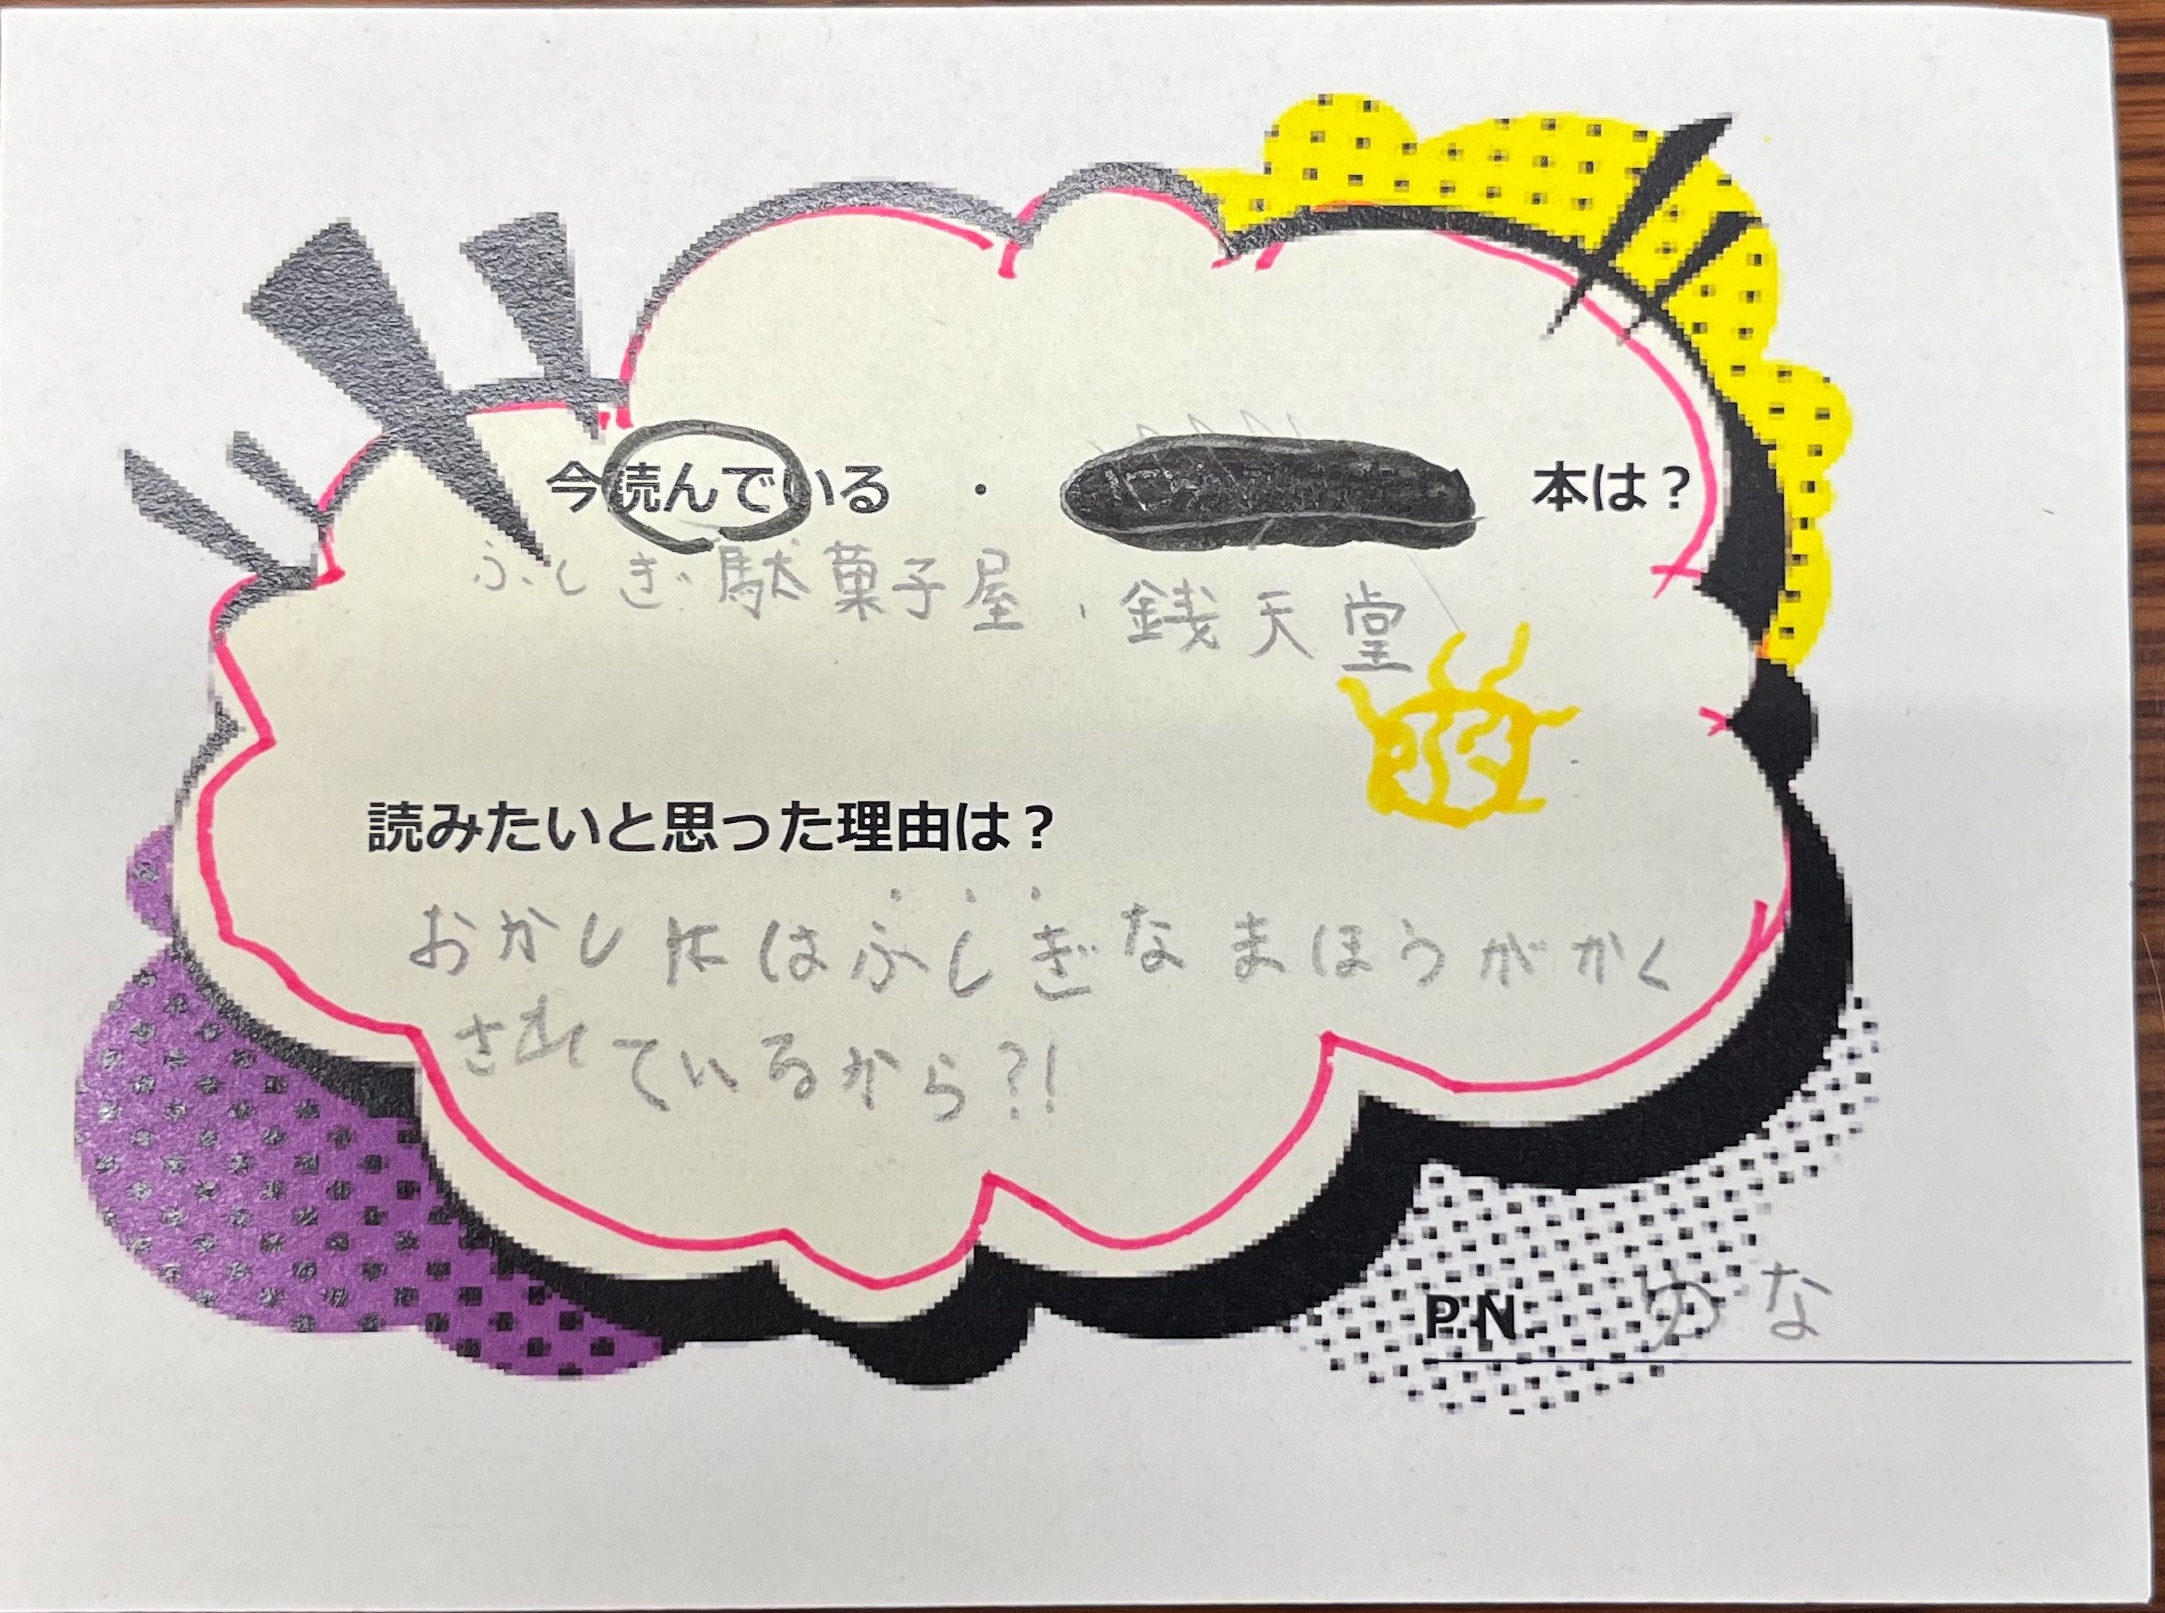 今読んでいる ・ 本は？
ふしぎ駄菓子屋・銭天堂
読みたいと思った理由は？
おかしにはふしぎなまほうがかく
されているから?!
P.N. ゆな